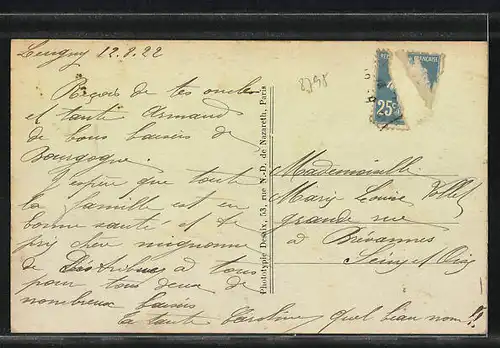 Lugny 12.8.22
Reçois de tes oncles
et tante Armand
de bons baisers de
Bourgogne.
J'espère que toute
la famille est en
bonne santé et te
prie chère mignonne
de distribuer à tous
pour tous deux de
nombreux baisers
ta tante Caroline, quel beau nom!!
8798
FRANÇAISE
25c
Phototypie Desaix, 53, rue N.-D. de Nazareth, Paris
Mademoiselle
Mary Louise
grande rue
à Brévannes
Seine et Oise